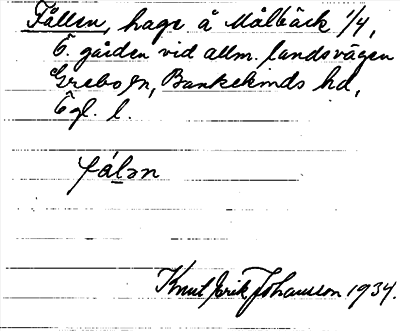 Fållen, hage å Målbäck 1/4,
Ö. gården vid allm. landsvägen
Grebo sn, Bankekinds hd,
Ögl. l.
fálən
Knut Erik Johansson 1934.